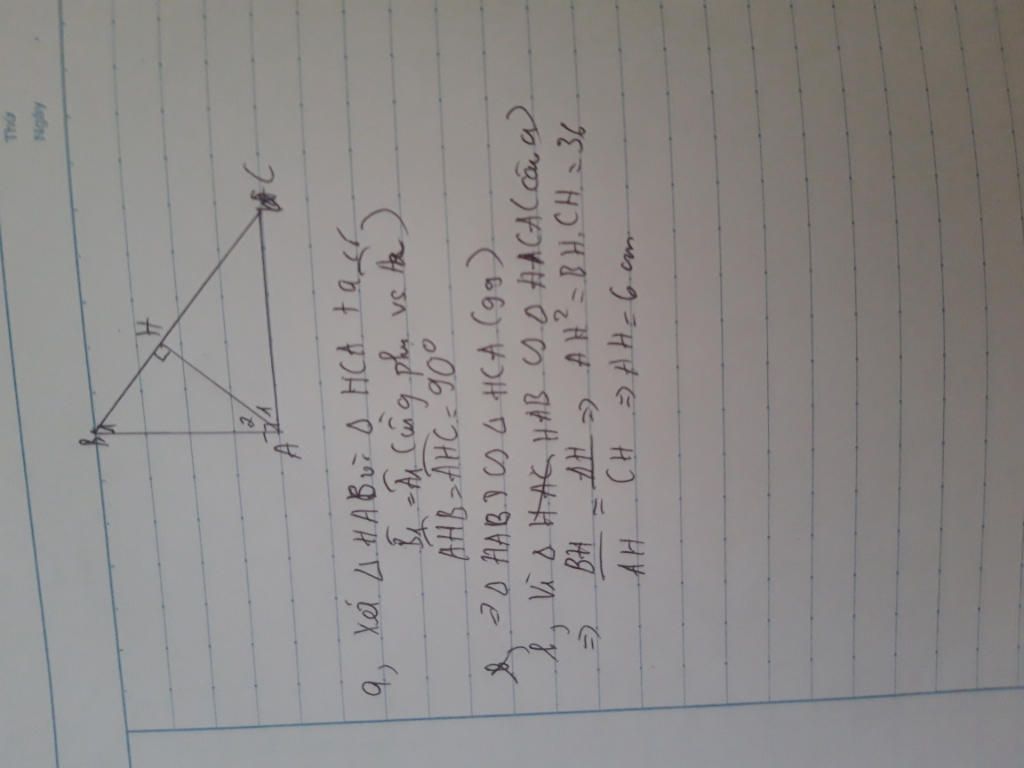 Thứ
Ngày
B
1
H
2
1
A
C
a, Xét Δ HAB và Δ HCA ta có
B̂1 = Â1 (cùng phụ vs Â2)
AHB = AHC = 90°
=> Δ HAB ∽ Δ HCA (gg)
b, Vì Δ HAB ∽ Δ HCA (câu a)
=> BH/AH = AH/CH => AH² = BH.CH = 36
=> AH = 6 cm